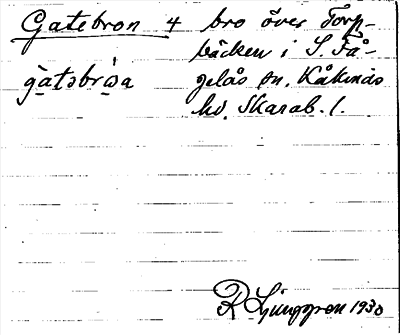 Gatebron 4 bro över Torp-
bäcken i S. Få-
gelås sn. Kåkinds
hd. Skarab. l.
gàtəbrẁa
R Ljunggren 1930